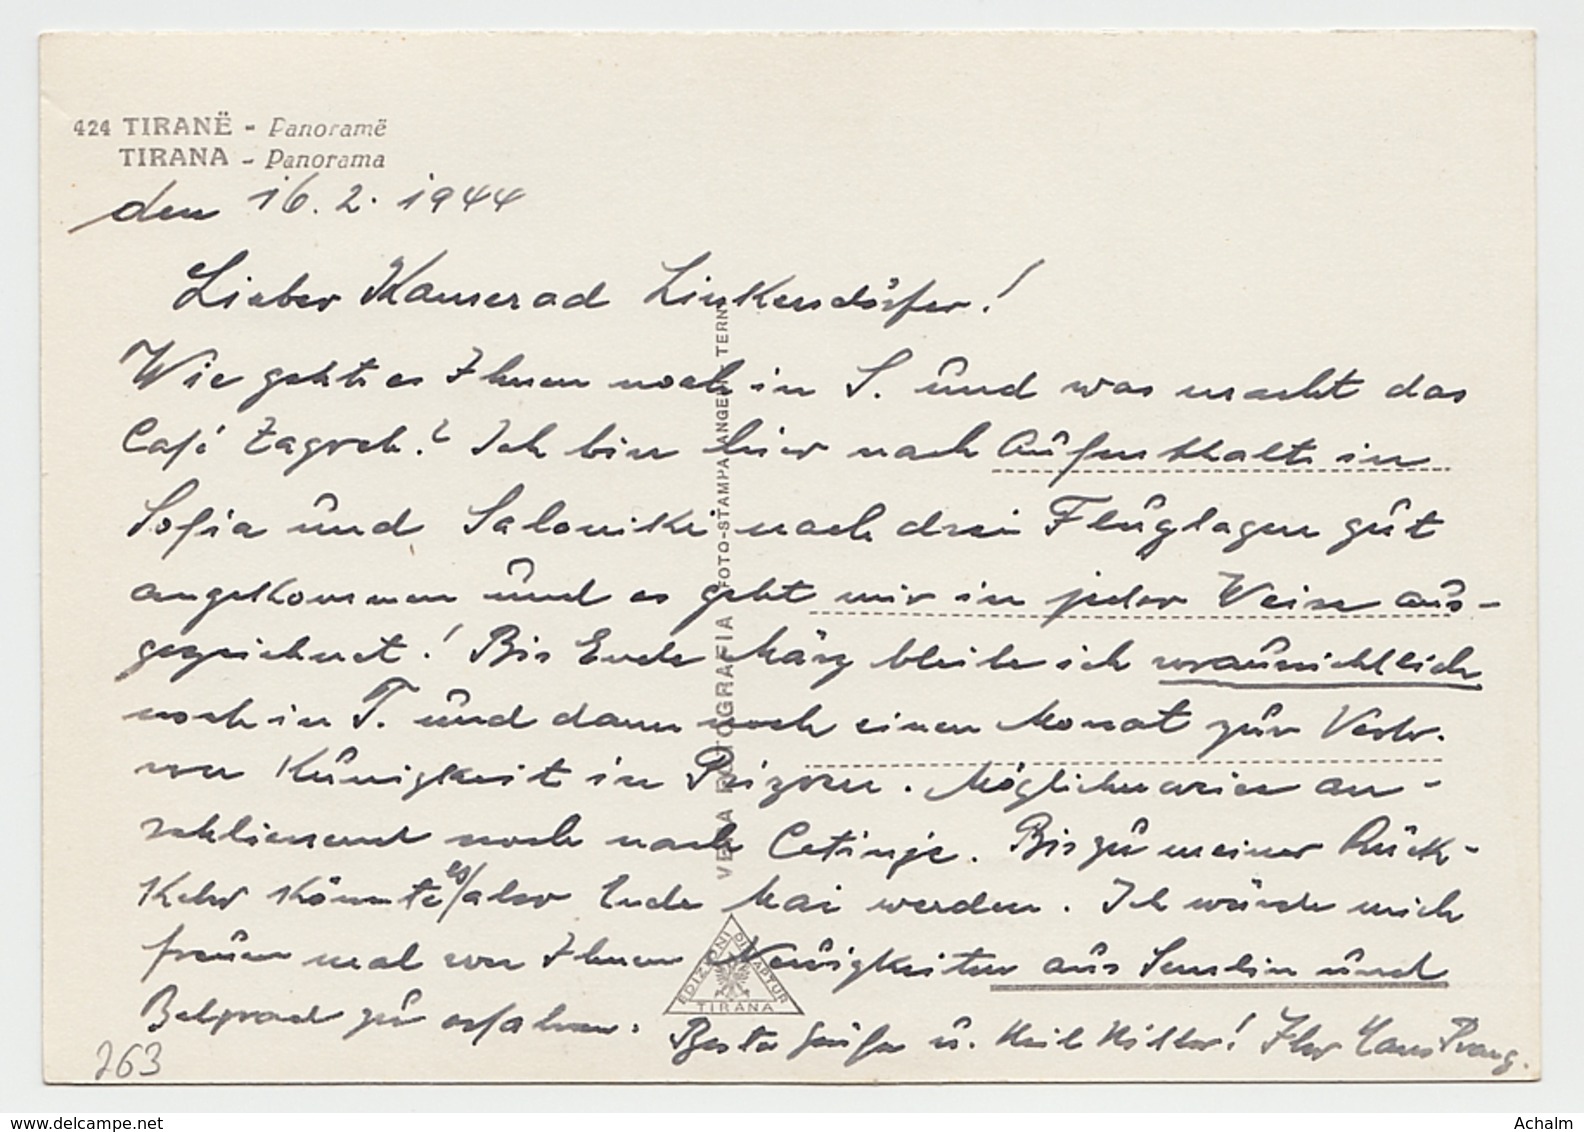 424 TIRANË - Panoramë
TIRANA - Panorama
den 16.2.1944
Lieber Kamerad Linkensdörfer!
Wie geht es Ihnen noch in S. und was macht das
Café Zagreb? Ich bin hier nach Aufenthalt in
Sofia und Saloniki nach drei Flugtagen gut
angekommen und es geht mir in jeder Weise aus-
gezeichnet! Bis Ende März bleibe ich voraussichtlich
noch in T. und dann noch einen Monat zur
von in Prizren. Möglicherweise an-
schliessend noch nach Cetinje. Bis zu meiner Rück-
kehr könnte es also Ende Mai werden. Ich würde mich
freuen mal von Ihnen Neuigkeiten aus Semlin und
Belgrad zu erfahren. Beste Grüße u. Heil Hitler! Ihr Hans
VERA FOTOGRAFIA FOTO-STAMPA ANGELI TERNI
EDIZIONI DITTA APTUR
TIRANA
263
www.delcampe.net
Achalm